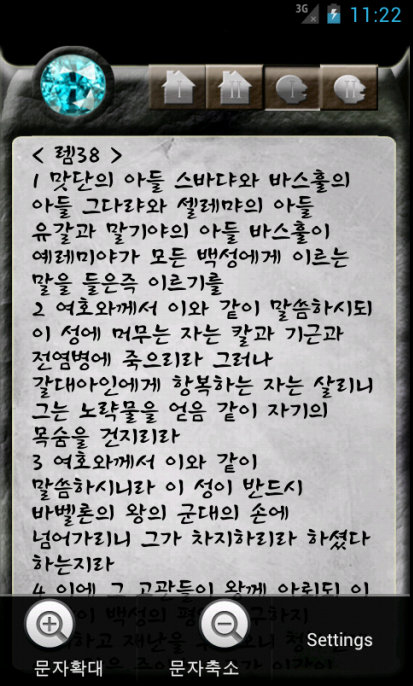 3G
11:22
I
II
I
II
< 렘38 >
1 맛단의 아들 스바댜와 바스훌의
아들 그다랴와 셀레먀의 아들
유갈과 말기야의 아들 바스훌이
예레미야가 모든 백성에게 이르는
말을 들은즉 이르기를
2 여호와께서 이와 같이 말씀하시되
이 성에 머무는 자는 칼과 기근과
전염병에 죽으리라 그러나
갈대아인에게 항복하는 자는 살리니
그는 노략물을 얻음 같이 자기의
목숨을 건지리라
3 여호와께서 이와 같이
말씀하시니라 이 성이 반드시
바벨론의 왕의 군대의 손에
넘어가리니 그가 차지하리라 하셨다
하는지라
4 이에 그 고관들이 왕께 아뢰되 이
백성의
재난을
문자확대
문자축소
Settings